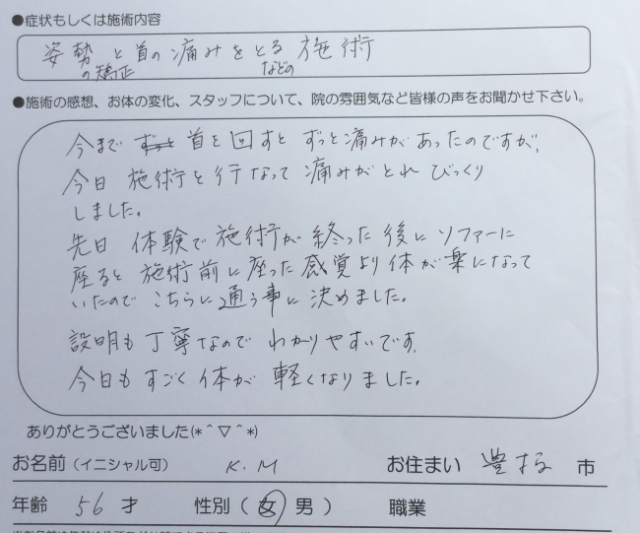 ●症状もしくは施術内容
姿勢の矯正と首の痛みをとるなどの施術
●施術の感想、お体の変化、スタッフについて、院の雰囲気など皆様の声をお聞かせ下さい。
今まで 首を回すと ずっと痛みがあったのですが、
今日 施術を行なって 痛みがとれ びっくり
しました。
先日 体験で施術が終った後に ソファーに
座ると 施術前に座った感覚より体が楽になって
いたので こちらに通う事に決めました。
説明も丁寧なので わかりやすいです。
今日も すごく 体が 軽くなりました。
ありがとうございました(*^▽^*)
お名前（イニシャル可） K.M お住まい 豊 市
年齢 56 才 性別（ 女 男 ） 職業